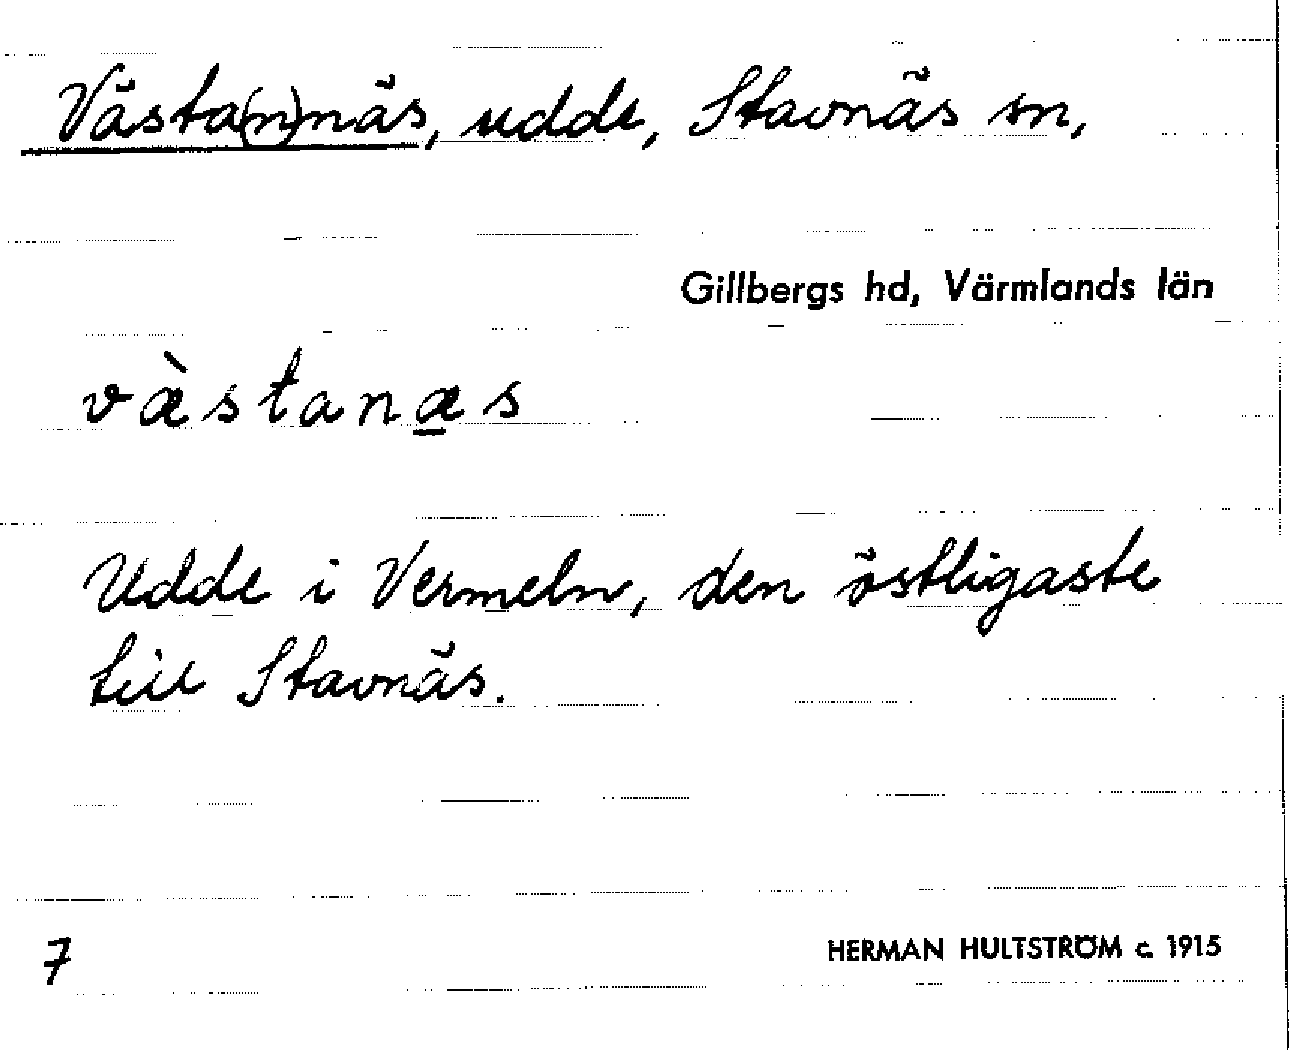 Västa(n)näs, udde, Stavnäs sn,
Gillbergs hd, Värmlands län
væ̀stanæ̱s
Udde i Vermeln, den östligaste
till Stavnäs.
7
HERMAN HULTSTRÖM c. 1915